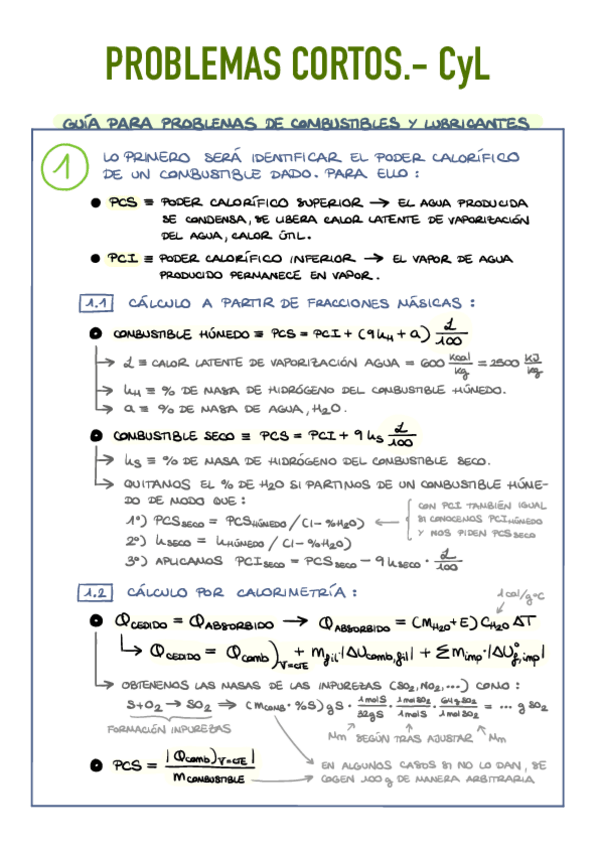 PROBLEMAS CORTOS.- CyL
GUÍA PARA PROBLEMAS DE COMBUSTIBLES Y LUBRICANTES
1 LO PRIMERO SERÁ IDENTIFICAR EL PODER CALORÍFICO
DE UN COMBUSTIBLE DADO. PARA ELLO:
● PCS ≡ PODER CALORÍFICO SUPERIOR → EL AGUA PRODUCIDA
SE CONDENSA, SE LIBERA CALOR LATENTE DE VAPORIZACIÓN
DEL AGUA, CALOR ÚTIL.
● PCI ≡ PODER CALORÍFICO INFERIOR → EL VAPOR DE AGUA
PRODUCIDO PERMANECE EN VAPOR.
1.1 CÁLCULO A PARTIR DE FRACCIONES MÁSICAS:
● COMBUSTIBLE HÚMEDO ≡ PCS = PCI + (9h_H + a) L/100
→ L ≡ CALOR LATENTE DE VAPORIZACIÓN AGUA = 600 Kcal/kg = 2500 KJ/kg
→ h_H ≡ % DE MASA DE HIDRÓGENO DEL COMBUSTIBLE HÚMEDO.
→ a ≡ % DE MASA DE AGUA, H2O.
● COMBUSTIBLE SECO ≡ PCS = PCI + 9 h_S L/100
→ h_S ≡ % DE MASA DE HIDRÓGENO DEL COMBUSTIBLE SECO.
→ QUITAMOS EL % DE H2O SI PARTIMOS DE UN COMBUSTIBLE HÚME-
DO DE MODO QUE:
1º) PCS SECO = PCS HÚMEDO / (1-%H2O) ← CON PCI TAMBIÉN IGUAL
2º) h SECO = h HÚMEDO / (1-%H2O) SI CONOCEMOS PCI HÚMEDO
3º) APLICAMOS PCI SECO = PCS SECO - 9 h SECO · L/100 Y NOS PIDEN PCS SECO
1.2 CÁLCULO POR CALORIMETRÍA:
1 cal/g·ºC
● Q CEDIDO = Q ABSORBIDO → Q ABSORBIDO = (M H2O + E) C H2O ΔT
→ Q CEDIDO = Q comb)V=CTE + m fil·|ΔU comb,fil| + Σ m imp·|ΔUº f,imp|
→ OBTENEMOS LAS MASAS DE LAS IMPUREZAS (SO2, NO2, ...) COMO:
S+O2 → SO2 ⇒ (m COMB · %S) g S · 1 mol S/32 g S · 1 mol SO2/1 mol S · 64 g SO2/1 mol SO2 = ... g SO2
FORMACIÓN IMPUREZAS Mm SEGÚN TRAS AJUSTAR Mm
● PCS = |Q comb)V=CTE| / m COMBUSTIBLE
→ EN ALGUNOS CASOS SI NO LO DAN, SE
→ COGEN 100 g DE MANERA ARBITRARIA